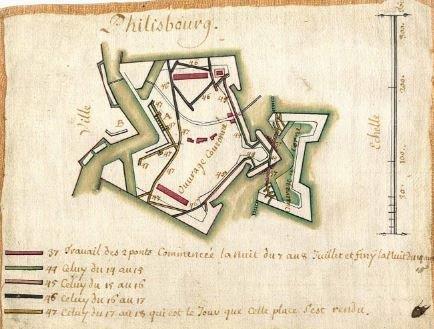 Philisbourg.
Ville
Ouvrage Couronné
Echelle
37 Travail des 2 ponts Commencée la nuit du 7 au 8 Juillet et finy la Nuit du
44 Celuy du 14 au 15
45 Celuy du 15 au 16
46 Celuy du 16 au 17
47 Celuy du 17 au 18 qui est le Jour que Cette place s'est rendu.